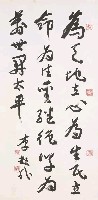 為天地立心為生民立
命為往聖繼絕學為
萬世開太平 李